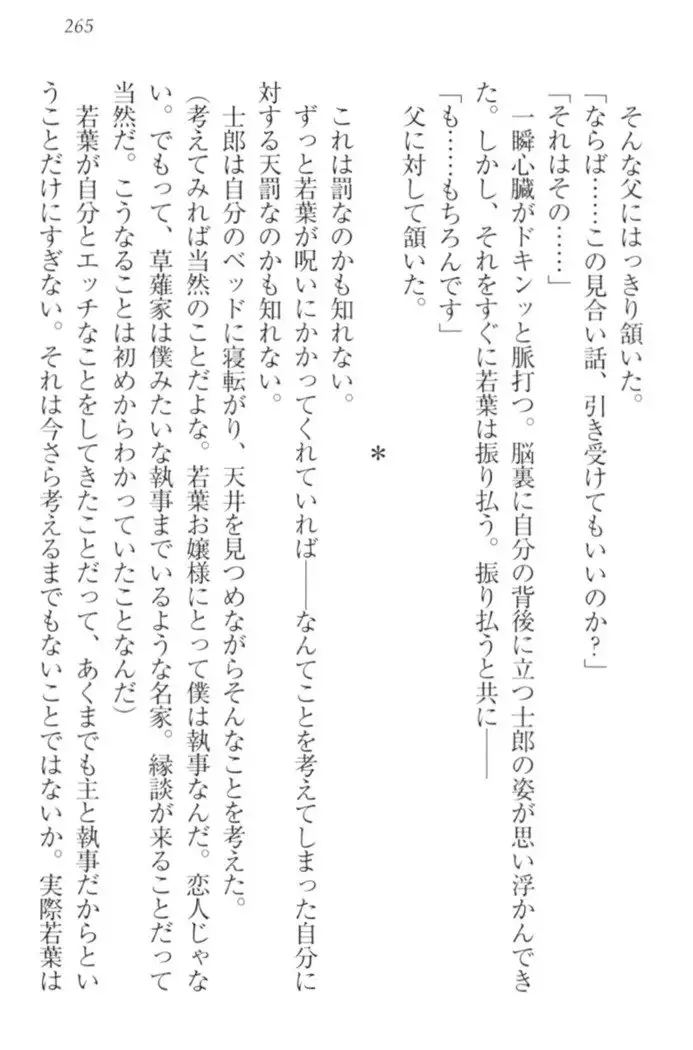 265
そんな父にはっきり頷いた。
「ならば……この見合い話、引き受けてもいいのか？」
「それはその……」
一瞬心臓がドキンッと脈打つ。脳裏に自分の背後に立つ士郎の姿が思い浮かんでき
た。しかし、それをすぐに若葉は振り払う。振り払うと共に――
「も……もちろんです」
父に対して頷いた。
＊
これは罰なのかも知れない。
ずっと若葉が呪いにかかってくれていれば――なんてことを考えてしまった自分に
対する天罰なのかも知れない。
士郎は自分のベッドに寝転がり、天井を見つめながらそんなことを考えた。
（考えてみれば当然のことだよな。若葉お嬢様にとって僕は執事なんだ。恋人じゃな
い。でもって、草薙家は僕みたいな執事までいるような名家。縁談が来ることだって
当然だ。こうなることは初めからわかっていたことなんだ）
若葉が自分とエッチなことをしてきたことだって、あくまでも主と執事だからとい
うことだけにすぎない。それは今さら考えるまでもないことではないか。実際若葉は